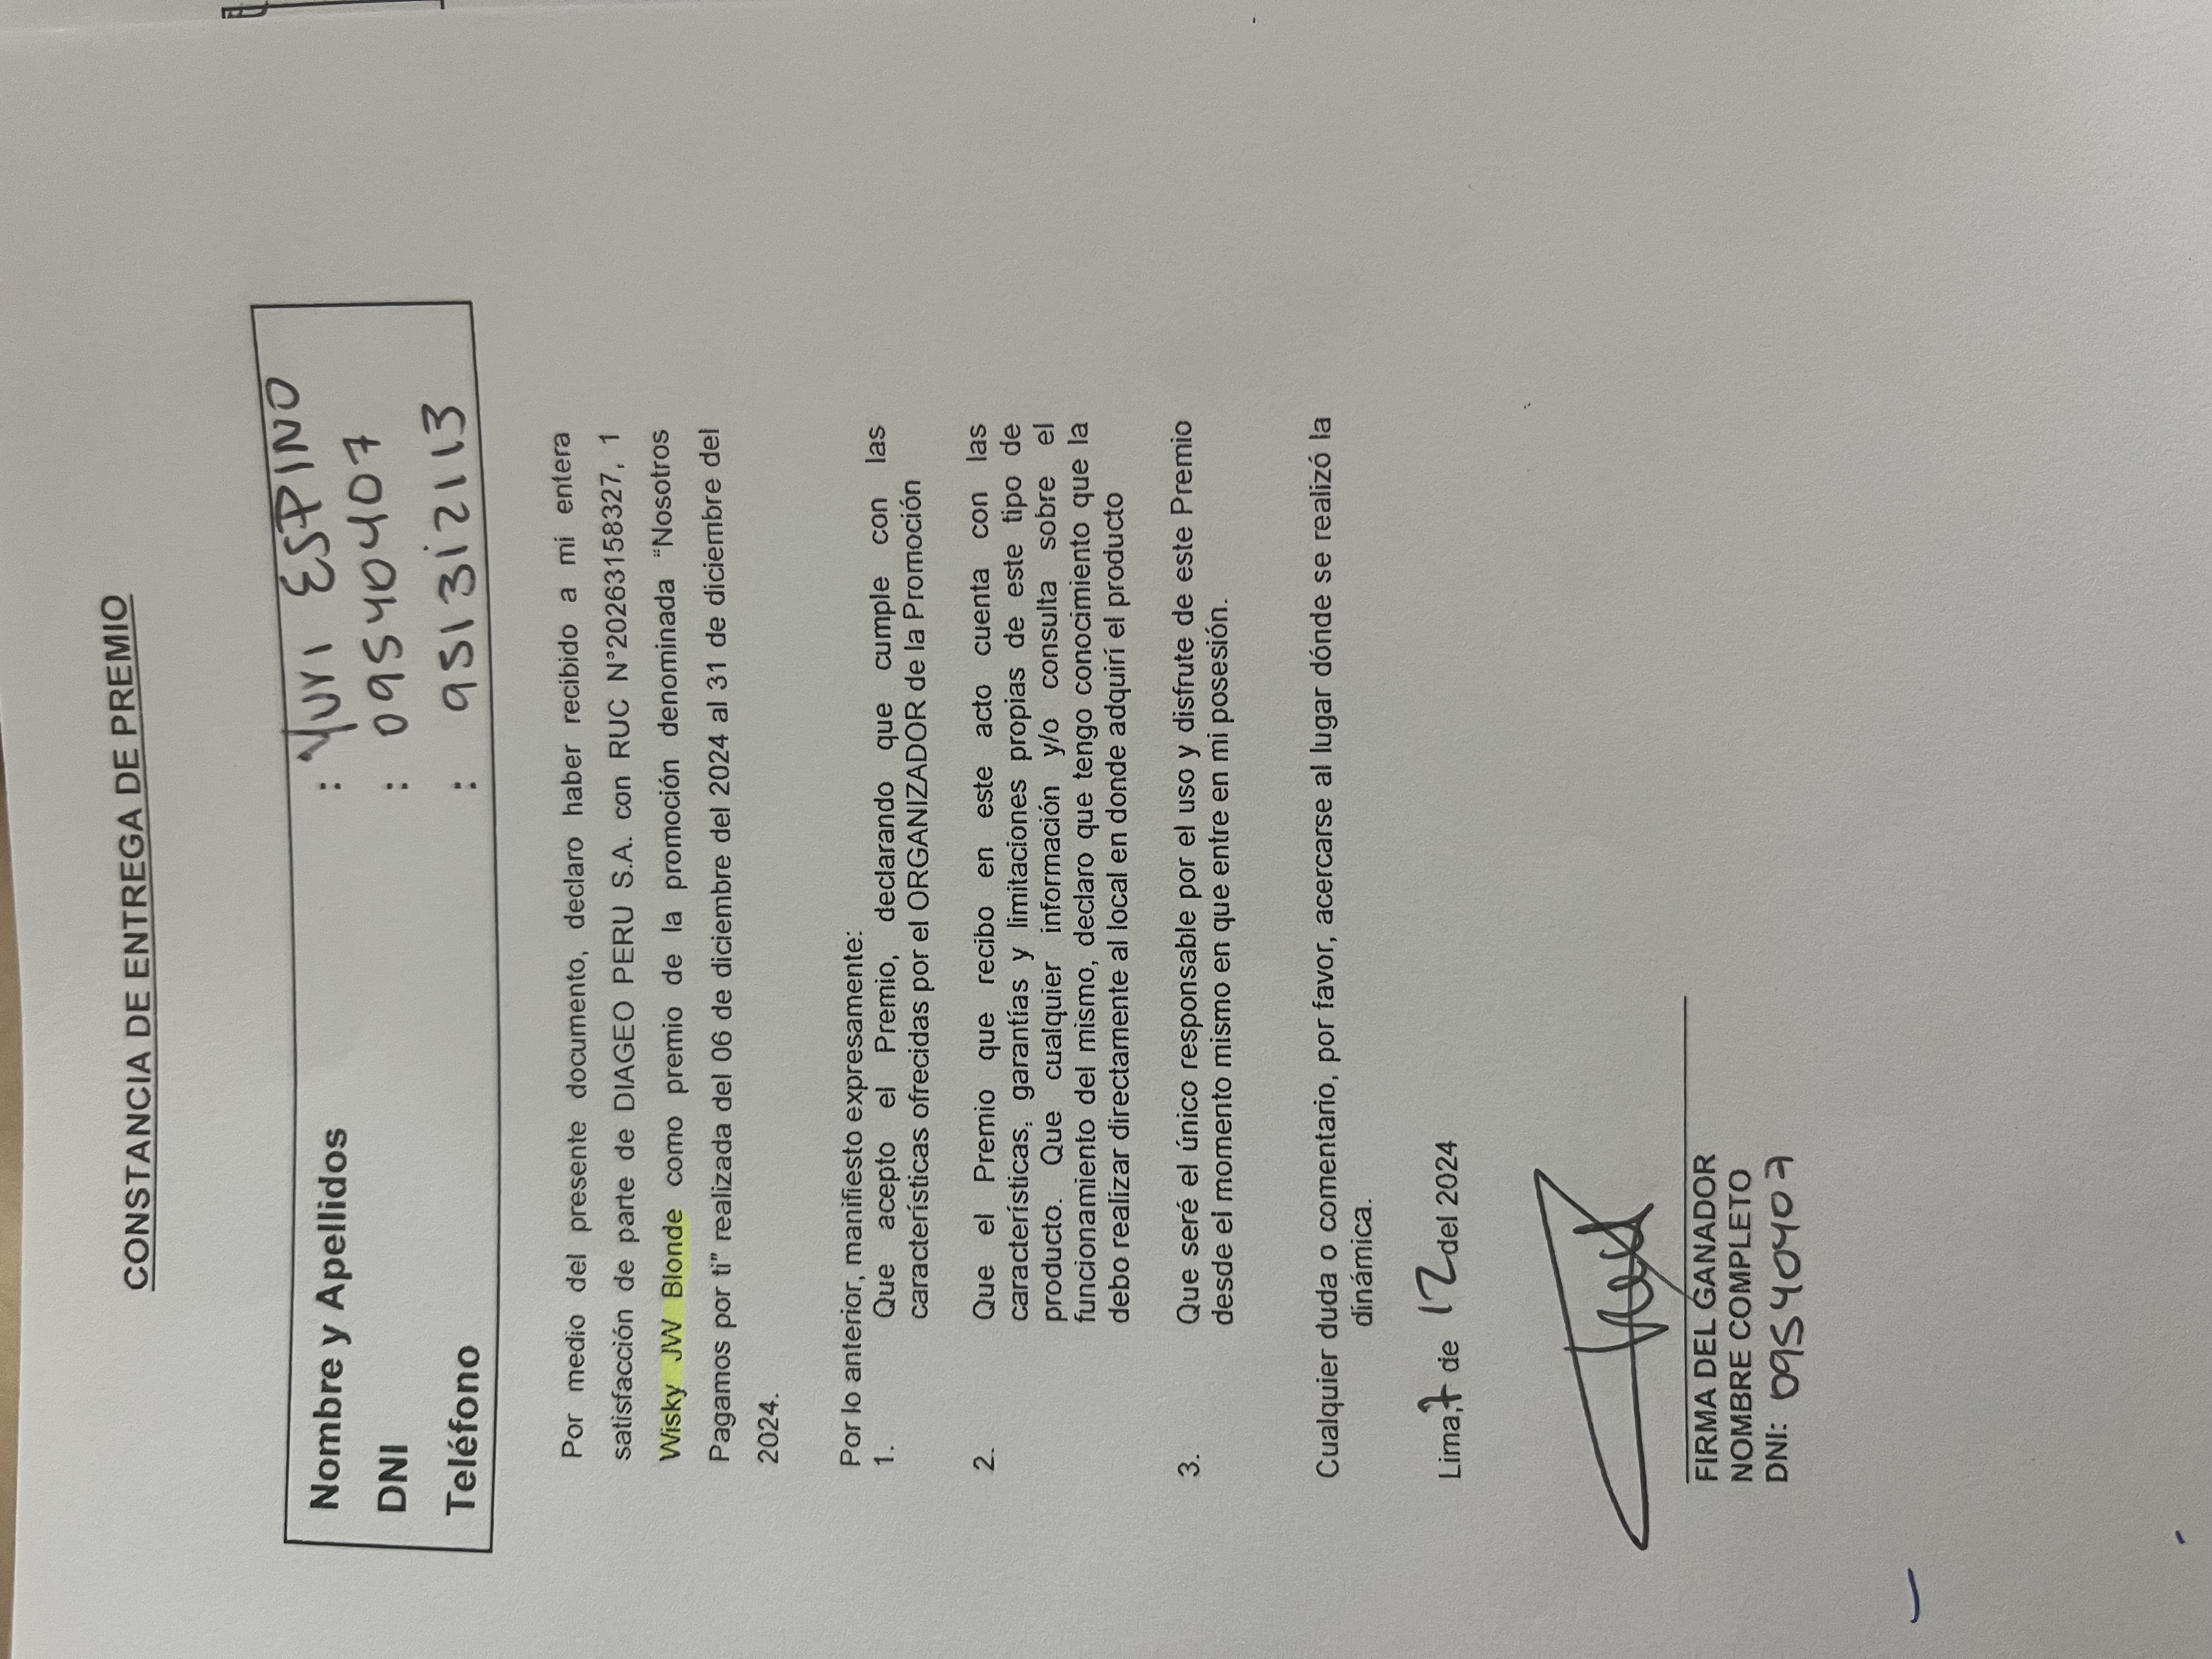 CONSTANCIA DE ENTREGA DE PREMIO
Nombre y Apellidos : Yuri ESPINO
DNI : 09540407
Teléfono : 951312113
Por medio del presente documento, declaro haber recibido a mi entera
satisfacción de parte de DIAGEO PERU S.A. con RUC N°20263158327, 1
Wisky JW Blonde como premio de la promoción denominada "Nosotros
Pagamos por ti" realizada del 06 de diciembre del 2024 al 31 de diciembre del
2024.
Por lo anterior, manifiesto expresamente:
1. Que acepto el Premio, declarando que cumple con las
características ofrecidas por el ORGANIZADOR de la Promoción
2. Que el Premio que recibo en este acto cuenta con las
características, garantías y limitaciones propias de este tipo de
producto. Que cualquier información y/o consulta sobre el
funcionamiento del mismo, declaro que tengo conocimiento que la
debo realizar directamente al local en donde adquirí el producto
3. Que seré el único responsable por el uso y disfrute de este Premio
desde el momento mismo en que entre en mi posesión.
Cualquier duda o comentario, por favor, acercarse al lugar dónde se realizó la
dinámica.
Lima, 7 de 12 del 2024
FIRMA DEL GANADOR
NOMBRE COMPLETO
DNI: 09540407